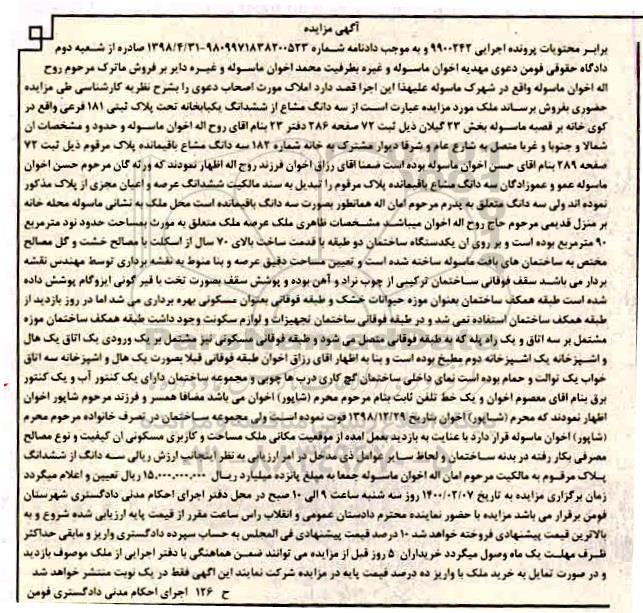 آگهی مزایده
برابر محتویات پرونده اجرایی ۹۹۰۰۲۴۲ و به موجب دادنامه شماره ۹۸۰۹۹۷۱۸۳۸۲۰۰۵۲۳-۱۳۹۸/۴/۳۱ صادره از شعبه دوم
دادگاه حقوقی فومن دعوی مهدیه اخوان ماسوله و غیره بطرفیت محمد اخوان ماسوله و غیره دایر بر فروش ماترک مرحوم روح
اله اخوان ماسوله واقع در شهرک ماسوله علیهذا این اجرا قصد دارد املاک مورث اصحاب دعوی را بشرح نظریه کارشناسی طی مزایده
حضوری بفروش برساند ملک مورد مزایده عبارت است از سه دانگ مشاع از ششدانگ یکبابخانه تحت پلاک ثبتی ۱۸۱ فرعی واقع در
کوی خانه بر قصبه ماسوله بخش ۲۳ گیلان ذیل ثبت ۷۲ صفحه ۲۸۶ دفتر ۲۳ بنام اقای روح اله اخوان ماسوله و حدود و مشخصات ان
شمالا و جنوبا و غربا متصل به شارع عام و شرقا دیوار مشترک به خانه شماره ۱۸۲ سه دانگ مشاع باقیمانده پلاک مرقوم ذیل ثبت ۷۲
صفحه ۲۸۹ بنام اقای حسن اخوان ماسوله بوده است ضمنا اقای رزاق اخوان فرزند روح اله اظهار نمودند که ورثه گان مرحوم حسن اخوان
ماسوله عمو و عموزادگان سه دانگ مشاع باقیمانده پلاک مرقوم را تبدیل به سند مالکیت ششدانگ عرصه و اعیان مجزی از پلاک مذکور
نموده اند ولی سه دانگ متعلق به پدرم مرحوم امان اله همانطور بصورت سه دانگ باقیمانده است محل ملک به نشانی ماسوله محله خانه
بر منزل قدیمی مرحوم حاج روح اله اخوان میباشد مشخصات ظاهری ملک عرصه ملک متعلق به مورث بمساحت حدود نود مترمربع
۹۰ مترمربع بوده است و بر روی ان یکدستگاه ساختمان دو طبقه با قدمت ساخت بالای ۷۰ سال از اسکلت با مصالح خشت و گل مصالح
مختص به ساختمان های بافت ماسوله ساخته شده است و تعیین مساحت دقیق عرصه و بنا منوط به نقشه برداری توسط مهندس نقشه
بردار می باشد سقف فوقانی ساختمان ترکیبی از چوب نراد و آهن بوده و پوشش سقف بصورت تخت با قیر گونی ایزوگام پوشش داده
شده است طبقه همکف ساختمان بعنوان موزه حیوانات خشک و طبقه فوقانی بعنوان مسکونی بهره برداری می شد اما در روز بازدید از
طبقه همکف ساختمان استفاده نمی شد و در طبقه فوقانی ساختمان تجهیزات و لوازم سکونت وجود داشت طبقه همکف ساختمان موزه
مشتمل بر سه اتاق و یک راه پله که به طبقه فوقانی متصل می شود و طبقه فوقانی مسکونی نیز مشتمل بر یک ورودی یک اتاق یک هال
و اشپزخانه یک اشپزخانه دوم مطبخ بوده است و بنا به اظهار اقای رزاق اخوان طبقه فوقانی قبلا بصورت یک هال و اشپزخانه سه اتاق
خواب یک توالت و حمام بوده است نمای داخلی ساختمان گچ کاری درب ها چوبی و مجموعه ساختمان دارای یک کنتور آب و یک کنتور
برق بنام اقای معصوم اخوان و یک خط تلفن ثابت بنام مرحوم محرم (شاپور) اخوان می باشد مضافا همسر و فرزند مرحوم شاپور اخوان
اظهار نمودند که محرم (شاپور) اخوان بتاریخ ۱۳۹۸/۱۲/۲۹ فوت نموده است ولی مجموعه ساختمان در تصرف خانواده مرحوم محرم
(شاپور) اخوان ماسوله قرار دارد با عنایت به بازدید بعمل امده از موقعیت مکانی ملک مساحت و کاربری مسکونی ان کیفیت و نوع مصالح
مصرفی بکار رفته در بدنه ساختمان و لحاظ سایر عوامل ذی مدخل در امر ارزیابی به نظر اینجانب ارزش ریالی سه دانگ از ششدانگ
پلاک مرقوم به مالکیت مرحوم امان اله اخوان ماسوله جمعا به مبلغ پانزده میلیارد ریال ۱۵،۰۰۰،۰۰۰،۰۰۰ ریال تعیین و اعلام میگردد
زمان برگزاری مزایده به تاریخ ۱۴۰۰/۰۲/۰۷ روز سه شنبه ساعت ۹ الی ۱۰ صبح در محل دفتر اجرای احکام مدنی دادگستری شهرستان
فومن برقرار می باشد مزایده با حضور نماینده محترم دادستان عمومی و انقلاب راس ساعت مقرر از قیمت پایه ارزیابی شده شروع و به
بالاترین قیمت پیشنهادی فروخته خواهد شد ۱۰ درصد قیمت پیشنهادی فی المجلس به حساب سپرده دادگستری واریز و مابقی حداکثر
ظرف مهلت یک ماه وصول میگردد خریداران ۵ روز قبل از مزایده می توانند ضمن هماهنگی با دفتر اجرایی از ملک موصوف بازدید
و در صورت تمایل به خرید ملک با واریز ده درصد قیمت پایه در مزایده شرکت نمایند این اگهی فقط در یک نوبت منتشر خواهد شد
ح ۱۲۶ اجرای احکام مدنی دادگستری فومن